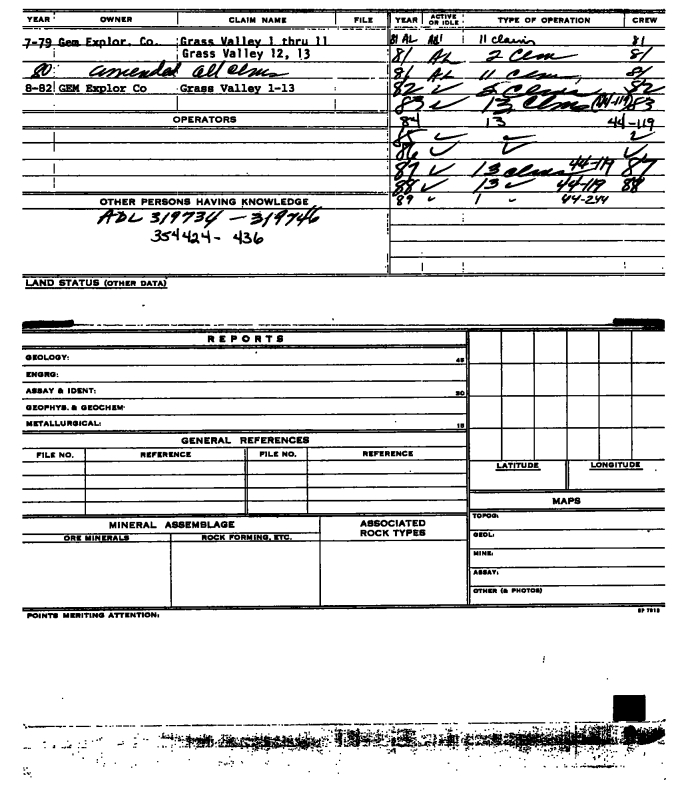 YEAR OWNER CLAIM NAME FILE YEAR ACTIVE OR IDLE TYPE OF OPERATION CREW
7-79 Gem Explor. Co. Grass Valley 1 thru 11 81 AL 11 claims 81
Grass Valley 12, 13 81 AL 2 Clm 81
80 amended all clms 81 AL 11 Clms 81
8-82 GEM Explor Co Grass Valley 1-13 82 ✓ Clms 82
83 ✓ 13 Clms (44-119) 83
OPERATORS 84 13 44-119
85 ✓ ✓ ✓
86 ✓ ✓ ✓
87 ✓ 13 clms 44-119 87
88 ✓ 13 ✓ 44-119 88
OTHER PERSONS HAVING KNOWLEDGE 89 ✓ 1 ✓ 44-244
ADL 319734 - 319746
354424 - 436
LAND STATUS (OTHER DATA)
REPORTS
GEOLOGY: 45
ENGRG:
ASSAY & IDENT: 30
GEOPHYS. & GEOCHEM:
METALLURGICAL: 15
GENERAL REFERENCES
FILE NO. REFERENCE FILE NO. REFERENCE
LATITUDE LONGITUDE
MAPS
TOPOG:
MINERAL ASSEMBLAGE ASSOCIATED ROCK TYPES
ORE MINERALS ROCK FORMING, ETC.
GEOL:
MINE:
ASSAY:
OTHER (& PHOTOS)
POINTS MERITING ATTENTION: SP 7913